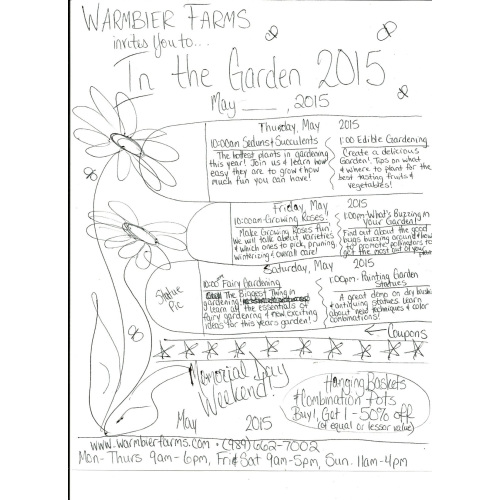 WARMBIER FARMS
invites you to...
In the Garden 2015
May ____, 2015
Thursday, May 2015
10:00am Sedums & Succulents
The hottest plants in gardening
this year! Join us & learn how
easy they are to grow & how
much fun you can have!
1:00 Edible Gardening
Create a delicious
Garden! Tips on what
& where to plant for the
best tasting fruits &
vegetables!
Friday, May 2015
10:00am Growing Roses!
Make Growing Roses fun!
We will talk about varieties
& which ones to pick, pruning,
winterizing & overall care!
1:00pm What's Buzzing in
Your Garden!
Find out about the good
bugs buzzing around & how
to promote pollinators to
get the most out of your
Saturday, May 2015
Statue
Pic
10:00am Fairy Gardening
The Biggest Thing in
gardening!
Learn all the essentials of
fairy gardening & new exciting
ideas for this years garden!
1:00pm - Painting Garden
Statues
A great demo on dry brush
& antiquing statues. Learn
about new techniques & color
combinations!
← Coupons
Memorial Day
Weekend!
May 2015
Hanging Baskets
& Combination Pots
Buy 1, Get 1 - 50% off
(of equal or lesser value)
www.warmbierfarms.com • (989) 662-7002
Mon-Thurs 9am-6pm, Fri & Sat 9am-5pm, Sun. 11am-4pm